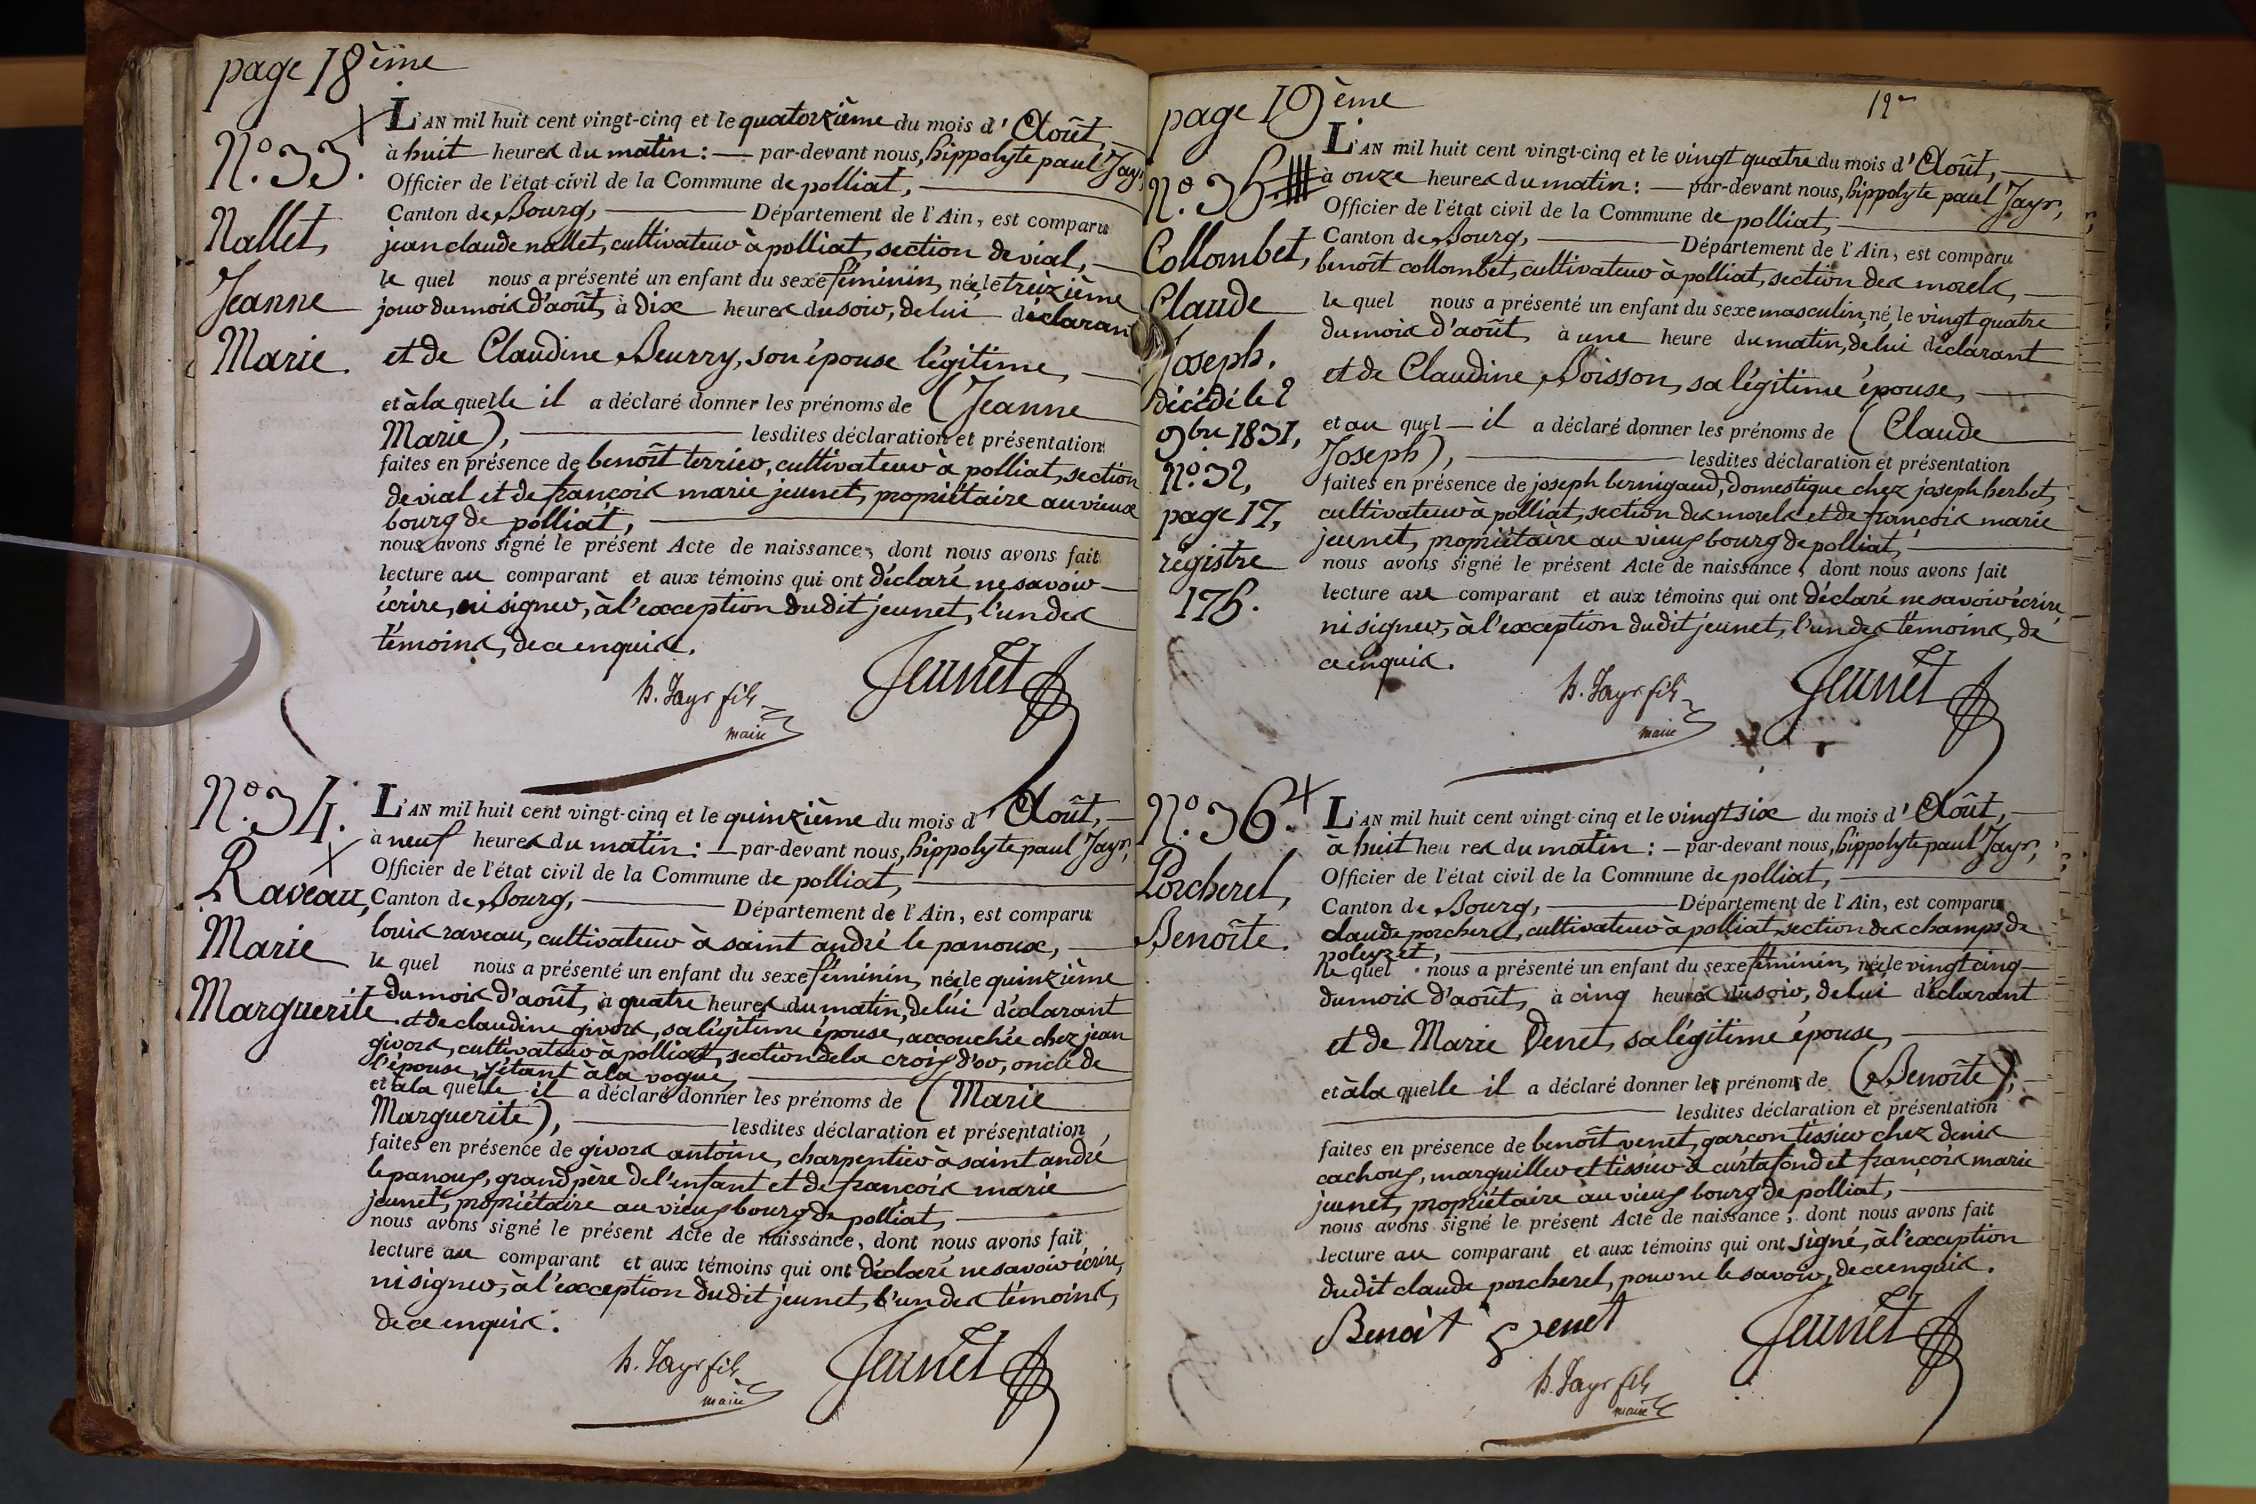 page 18ème
N.º 33.
Nallet,
Jeanne
Marie.
L'AN mil huit cent vingt-cinq et le quatorzième du mois d'Août,
à huit heures du matin: — par-devant nous, hippolyte paul Jayr,
Officier de l'état civil de la Commune de polliat, —
Canton de Bourg, — Département de l'Ain, est comparu
jean claude nallet, cultivateur à polliat, section de vial, —
le quel nous a présenté un enfant du sexe féminin, née le treizième
jour du mois d'août, à dix heures du soir, de lui déclarant
et de Claudine Beurry, son épouse légitime, —
et à la quelle il a déclaré donner les prénoms de (Jeanne
Marie), — lesdites déclaration et présentation
faites en présence de benoît terrier, cultivateur à polliat, section
de vial et de françois marie jeunet, propriétaire au vieux
bourg de polliat, —
nous avons signé le présent Acte de naissance, dont nous avons fait
lecture au comparant et aux témoins qui ont déclaré ne savoir —
écrire, ni signer, à l'exception dudit jeunet, l'un des
témoins, de ce enquis.
h. Jayr fils
maire
Jeunet
N.º 34.
Raveau,
Marie
Marguerite.
L'AN mil huit cent vingt-cinq et le quinzième du mois d'Août, —
à neuf heures du matin: — par-devant nous, hippolyte paul Jayr,
Officier de l'état civil de la Commune de polliat, —
Canton de Bourg, — Département de l'Ain, est comparu
louis raveau, cultivateur à saint andré le panoux, —
le quel nous a présenté un enfant du sexe féminin, née le quinzième
du mois d'août, à quatre heures du matin, de lui déclarant
et de claudine givors, sa légitime épouse, accouchée chez jean
givors, cultivateur à polliat, section de la croix d'or, oncle de
l'épouse, s'étant à la vogue, —
et à la quelle il a déclaré donner les prénoms de (Marie
Marguerite), — lesdites déclaration et présentation
faites en présence de givors antoine, charpentier à saint andré
le panoux, grand père de l'enfant et de françois marie
jeunet, propriétaire au vieux bourg de polliat, —
nous avons signé le présent Acte de naissance, dont nous avons fait
lecture au comparant et aux témoins qui ont déclaré ne savoir écrire,
ni signer, à l'exception dudit jeunet, l'un des témoins,
de ce enquis.
h. Jayr fils
maire
Jeunet
page 19ème
N.º 35
Collombet,
Claude
Joseph.
décédé le 2
9bre 1831,
N.º 32,
page 17,
régistre
175.
L'AN mil huit cent vingt-cinq et le vingt quatre du mois d'Août, —
à onze heures du matin: — par-devant nous, hippolyte paul Jayr,
Officier de l'état civil de la Commune de polliat, —
Canton de Bourg, — Département de l'Ain, est comparu
benoît collombet, cultivateur à polliat, section des morels, —
le quel nous a présenté un enfant du sexe masculin, né le vingt quatre
du mois d'août, à une heure du matin, de lui déclarant
et de Claudine Boisson, sa légitime épouse, —
et au quel — il a déclaré donner les prénoms de (Claude
Joseph), — lesdites déclaration et présentation
faites en présence de joseph bernigaud, domestique chez joseph herbet,
cultivateur à polliat, section des morels et de françois marie
jeunet, propriétaire au vieux bourg de polliat, —
nous avons signé le présent Acte de naissance, dont nous avons fait
lecture au comparant et aux témoins qui ont déclaré ne savoir écrire,
ni signer, à l'exception dudit jeunet, l'un des témoins, de
ce enquis.
h. Jayr fils
maire
Jeunet
N.º 36.
Porcherel,
Benoîte.
L'AN mil huit cent vingt-cinq et le vingt six du mois d'Août, —
à huit heures du matin: — par-devant nous, hippolyte paul Jayr,
Officier de l'état civil de la Commune de polliat, —
Canton de Bourg, — Département de l'Ain, est comparu
claude porcherel, cultivateur à polliat, section des champs de
poleyzet, —
le quel nous a présenté un enfant du sexe féminin, née le vingt cinq —
du mois d'août, à cinq heures du soir, de lui déclarant
et de Marie Venet, sa légitime épouse, —
et à la quelle il a déclaré donner les prénoms de (Benoîte), —
— lesdites déclaration et présentation
faites en présence de benoît venet, garçon tissier chez denis
cachoux, marguiller et tissier à curtafond et françois marie
jeunet, propriétaire au vieux bourg de polliat, —
nous avons signé le présent Acte de naissance, dont nous avons fait
lecture au comparant et aux témoins qui ont signé, à l'exception
dudit claude porcherel, pour ne le savoir, de ce enquis.
Benoit Venet
Jeunet
h. Jayr fils
maire